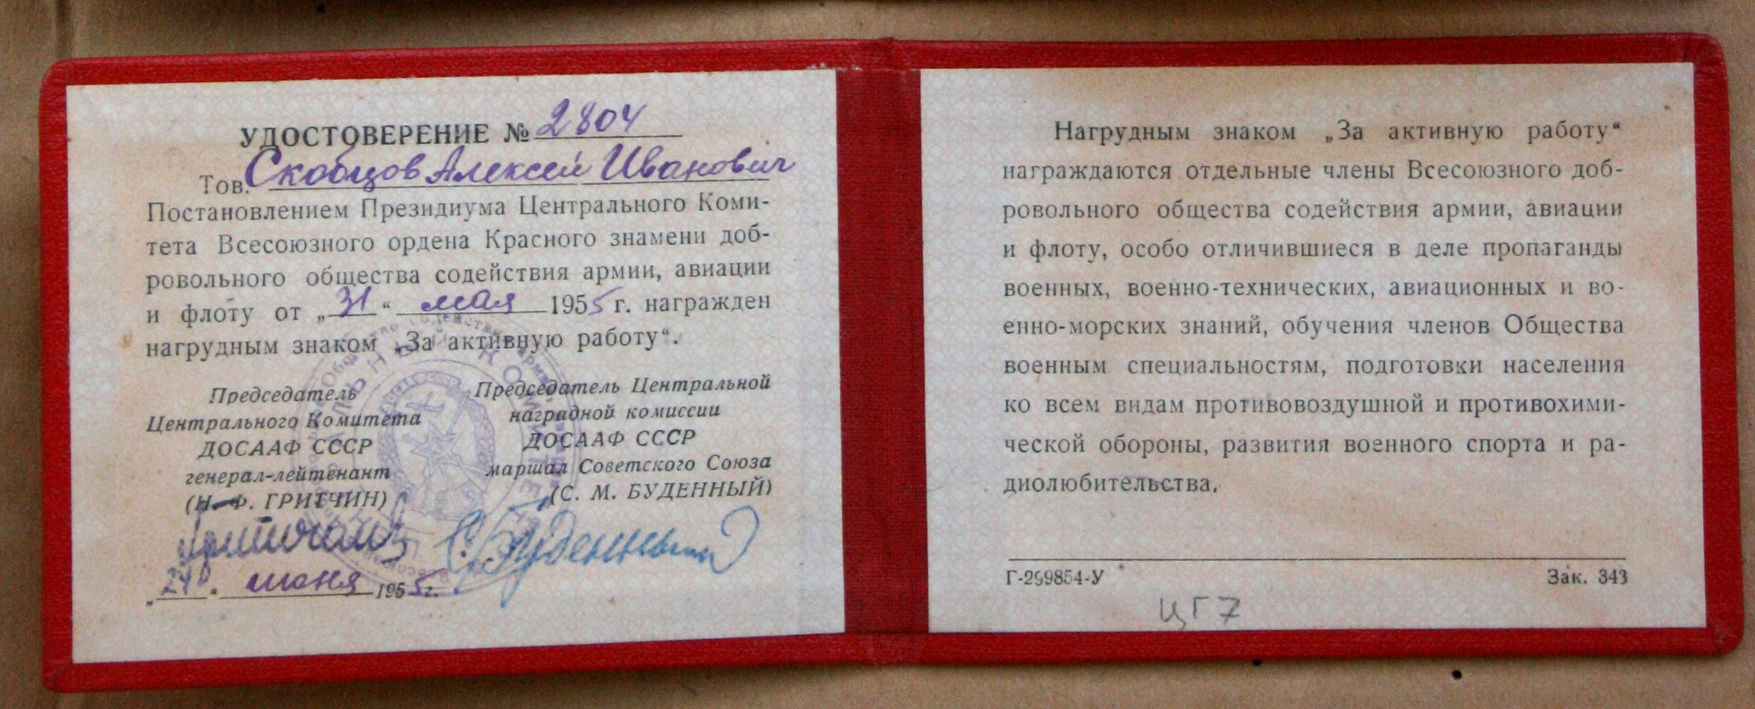 УДОСТОВЕРЕНИЕ № 2804
Тов. Скобцов Алексей Иванович
Постановлением Президиума Центрального Коми-
тета Всесоюзного ордена Красного знамени доб-
ровольного общества содействия армии, авиации
и флоту от „31“ мая 1955 г. награжден
нагрудным знаком „За активную работу“.
Председатель
Центрального Комитета
ДОСААФ СССР
генерал-лейтенант
(Н. Ф. ГРИТЧИН)
Председатель Центральной
наградной комиссии
ДОСААФ СССР
маршал Советского Союза
(С. М. БУДЕННЫЙ)
С. Буденный
июня 1955 г.
Нагрудным знаком „За активную работу“
награждаются отдельные члены Всесоюзного доб-
ровольного общества содействия армии, авиации
и флоту, особо отличившиеся в деле пропаганды
военных, военно-технических, авиационных и во-
енно-морских знаний, обучения членов Общества
военным специальностям, подготовки населения
ко всем видам противовоздушной и противохими-
ческой обороны, развития военного спорта и ра-
диолюбительства.
Г-299854-У Зак. 343
ЦГ7